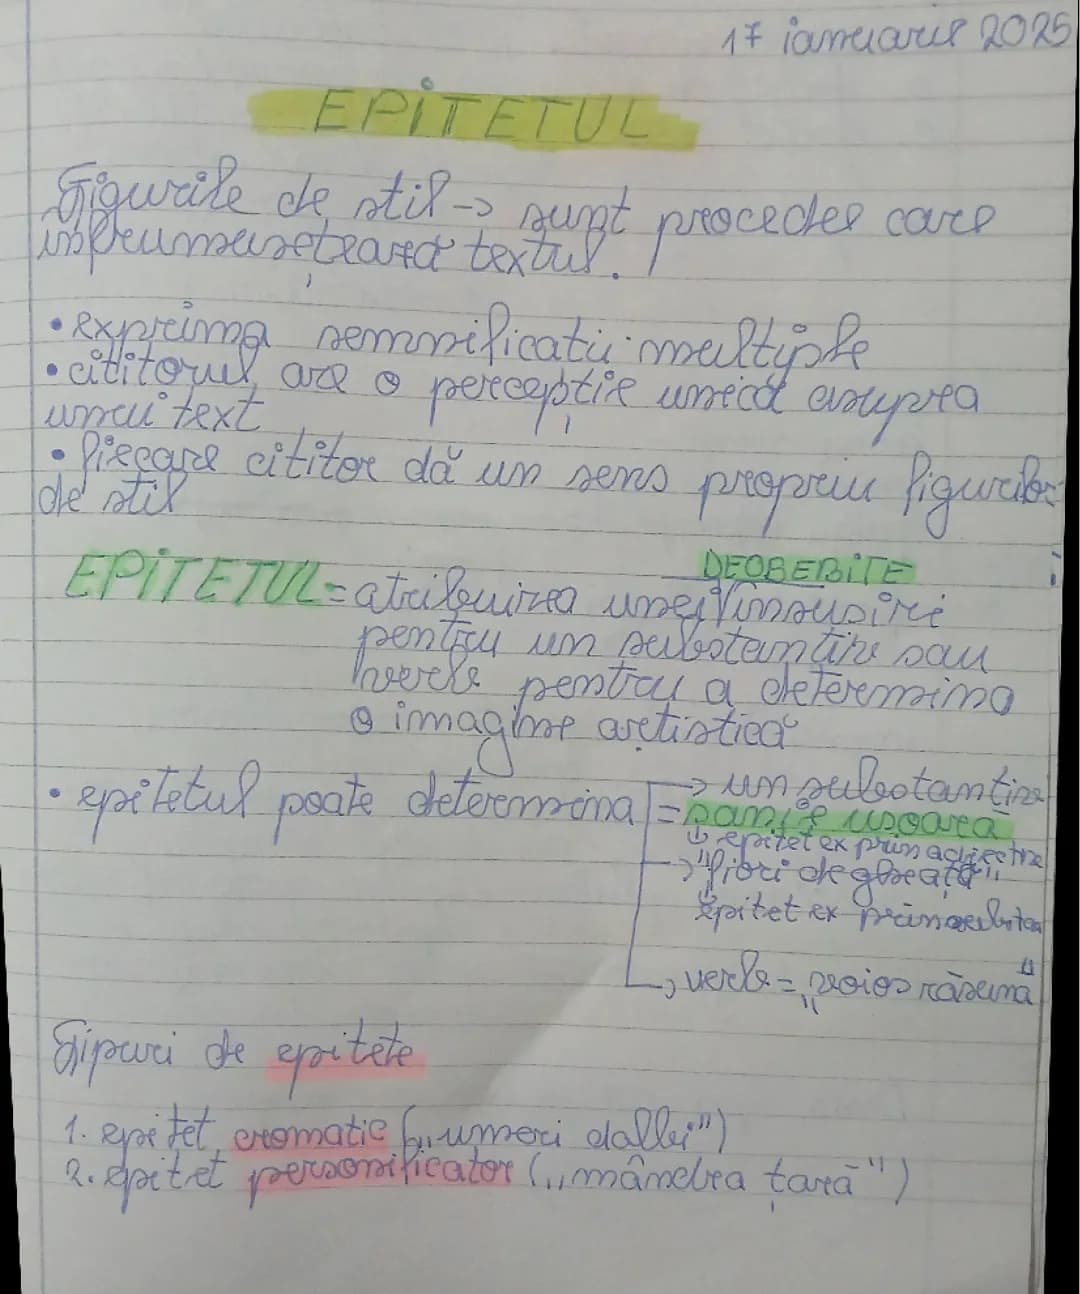 17 ianuarie 2025
EPITETUL
Figurile de stil → sunt procedee care
înfrumusețează textul.
• exprimă semnificații multiple
• cititorul are o percepție unică asupra
unui text
• fiecare cititor dă un sens propriu figurilor
de stil
DEOSEBITE
EPITETUL = atribuirea unei însusiri
pentru un substantiv sau
verb pentru a determina
o imagine artistică
• epitetul poate determina → un substantiv
= usoară
↓ epitet ex prin adjective
→ "fiori de gheață"
epitet ex prin substan
→ verb = „voios răsună"
Tipuri de epitete
1. epitet cromatic („umeri dalbi")
2. epitet personificator („mândra țară")